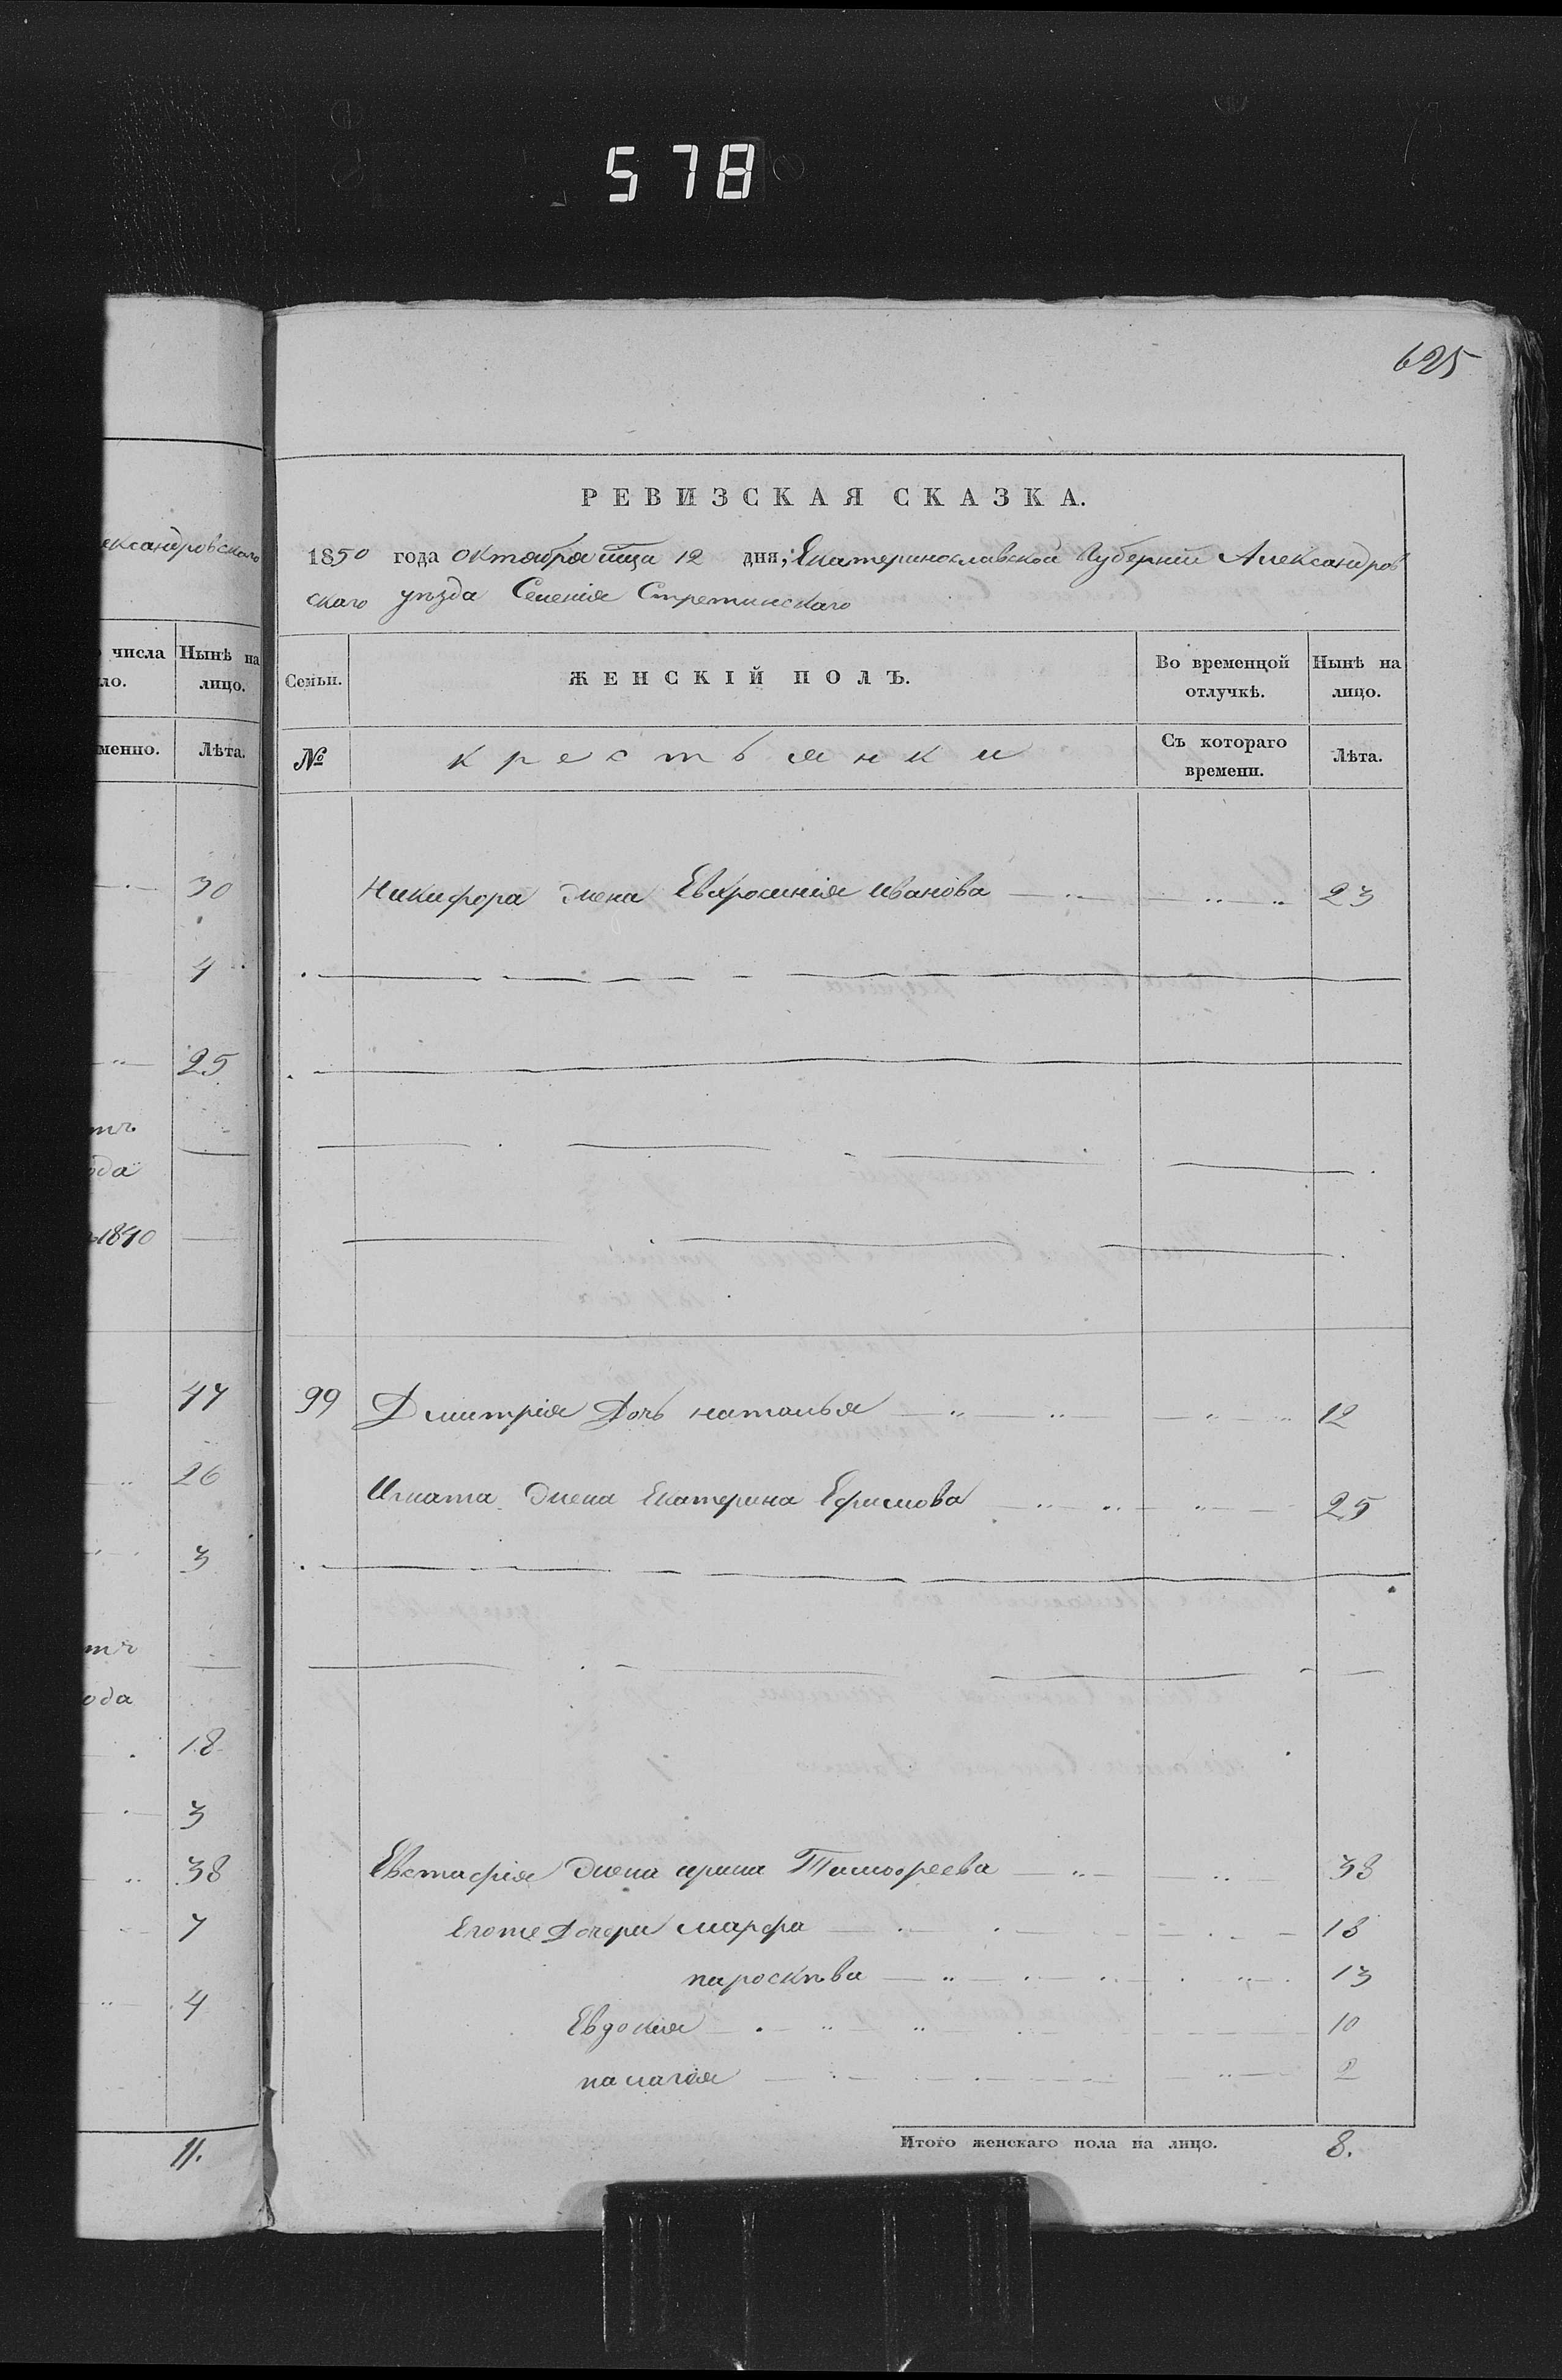 578
625
ександровскаго
РЕВИЗСКАЯ СКАЗКА.
1850 года октября мца 12 дня; Екатеринославской Губернии Александров
скаго уѣзда Селенія Стретинскаго
числа
ло.
Нынѣ на
лицо.
Семьи.
ЖЕНСКІЙ ПОЛЪ.
Во временной
отлучкѣ.
Нынѣ на
лицо.
менно.
Лѣта.
№
крестьянки
Съ котораго
времени.
Лѣта.
30
Никифора жена Евфросинія иванова 23
4
25
тъ
ода
1840
47
99 Дмитрія Дочь наталья 12
26
Игната жена Екатерина Ефимова 25
3
тъ
ода
18
3
38
Евстафія жена ирина Тимофеева 38
7
Егоже Дочери марфа 18
пароскѣва 13
4
Евдокія 10
палагія 2
11.
Итого женскаго пола на лицо. 8.